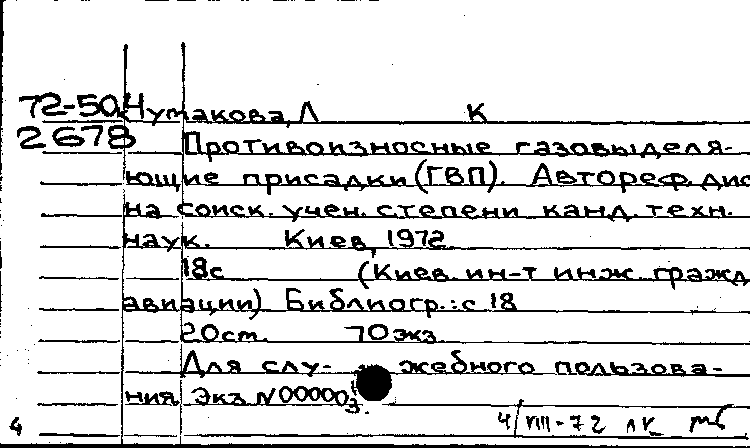 72-50 Чумакова, Л К
2678 Противоизносные газовыделя-
ющие присадки (ГВП). Автореф. дис
на соиск. учен. степени канд. техн.
наук. Киев, 1972
18с (Киев. ин-т инж. гражд
авиации) Библиогр.: с 18
20см. 70 экз
Для слу- жебного пользова-
ния Экз N 000003.
4 4/VIII-72 лк